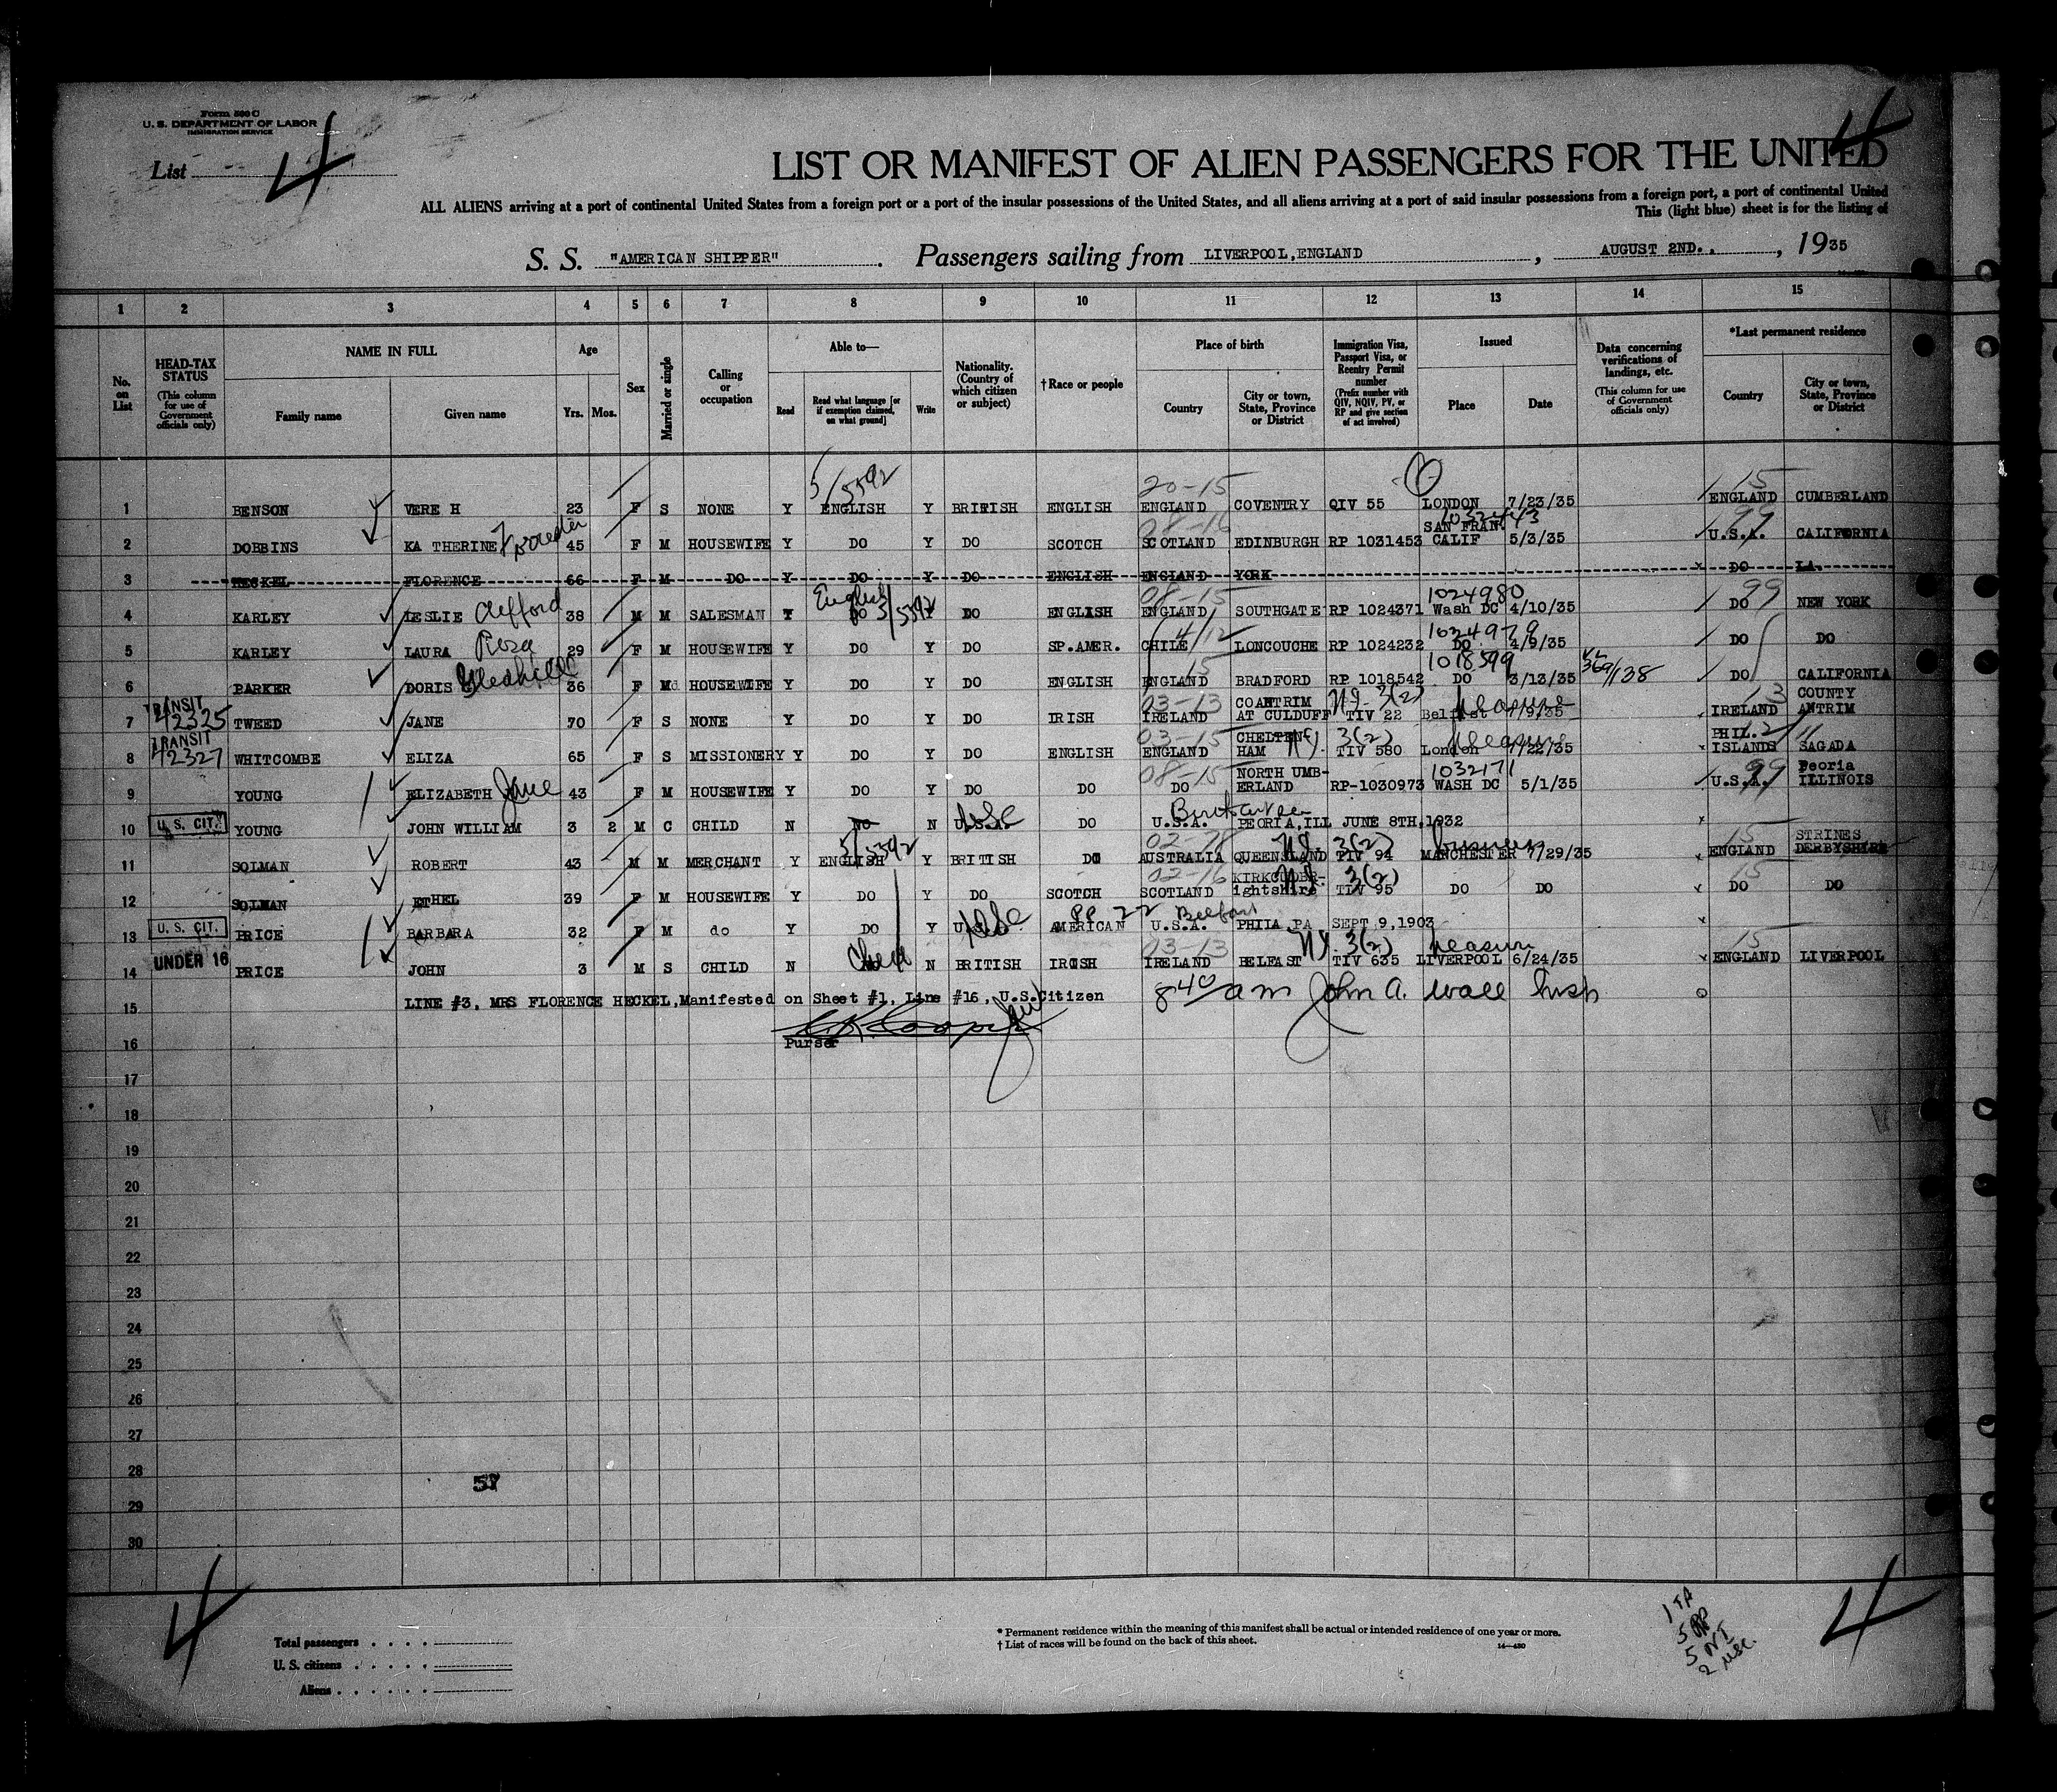 Form 500 C
U. S. DEPARTMENT OF LABOR
IMMIGRATION SERVICE
List 4
4
LIST OR MANIFEST OF ALIEN PASSENGERS FOR THE UNITED
ALL ALIENS arriving at a port of continental United States from a foreign port or a port of the insular possessions of the United States, and all aliens arriving at a port of said insular possessions from a foreign port, a port of continental United
This (light blue) sheet is for the listing of
S. S. "AMERICAN SHIPPER". Passengers sailing from LIVERPOOL, ENGLAND, AUGUST 2ND., 1935
1 2 3 4 5 6 7 8 9 10 11 12 13 14 15
No. on List
HEAD-TAX STATUS (This column for use of Government officials only)
NAME IN FULL
Family name Given name
Age
Yrs. Mos.
Sex
Married or single
Calling or occupation
Able to—
Read Read what language [or if exemption claimed, on what ground] Write
Nationality. (Country of which citizen or subject)
† Race or people
Place of birth
Country City or town, State, Province or District
Immigration Visa, Passport Visa, or Reentry Permit number (Prefix number with QIV, NQIV, PV, or RP and give section of act involved)
Issued
Place Date
Data concerning verifications of landings, etc. (This column for use of Government officials only)
*Last permanent residence
Country City or town, State, Province or District
5/5592 20-15 15
1 BENSON VERE H 23 F S NONE Y ENGLISH Y BRITISH ENGLISH ENGLAND COVENTRY QIV 55 LONDON 7/23/35 ENGLAND CUMBERLAND
08-16 SAN FRAN. 99
2 DOBBINS KATHERINE 45 F M HOUSEWIFE Y DO Y DO SCOTCH SCOTLAND EDINBURGH RP 1031453 CALIF 5/3/35 U.S.A. CALIFORNIA
3 HECKEL FLORENCE 66 F M DO Y DO Y DO ENGLISH ENGLAND YORK DO LA.
English 5/5592 08-15 1024980 99
4 KARLEY LESLIE Clifford 38 M M SALESMAN Y DO Y DO ENGLISH ENGLAND SOUTHGATE RP 1024371 Wash DC 4/10/35 DO NEW YORK
4/12 1024979
5 KARLEY LAURA Rosa 29 F M HOUSEWIFE Y DO Y DO SP.AMER. CHILE LONCOUCHE RP 1024232 DO 4/9/35 DO DO
15 1018599 369/138
6 PARKER DORIS Gledhill 36 F Md HOUSEWIFE Y DO Y DO ENGLISH ENGLAND BRADFORD RP 1018542 DO 3/13/35 DO CALIFORNIA
TRANSIT 42325 03-13 CO ANTRIM 3(2) pleasure 13 COUNTY
7 TWEED JANE 70 F S NONE Y DO Y DO IRISH IRELAND AT CULDUFF TIV 22 Belfast 7/9/35 IRELAND ANTRIM
TRANSIT 42327 03-15 CHELTEN- 3(2) pleasure PHIL.
8 WHITCOMBE ELIZA 65 F S MISSIONERY Y DO Y DO ENGLISH ENGLAND HAM TIV 580 London 7/22/35 ISLANDS SAGADA
08-15 NORTH UMB- 1032171 99 Peoria
9 YOUNG ELIZABETH Jane 43 F M HOUSEWIFE Y DO Y DO DO DO ERLAND RP-1030973 WASH DC 5/1/35 U.S.A. ILLINOIS
U. S. CIT.
10 YOUNG JOHN WILLIAM 3 2 M C CHILD N NO N U.S.A. DO U.S.A. PEORIA, ILL JUNE 8TH, 1932
5/5592 02-78 3(2) business 15 STRINES
11 SOLMAN ROBERT 43 M M MERCHANT Y ENGLISH Y BRITISH DO AUSTRALIA QUEENSLAND TIV 94 MANCHESTER 7/29/35 ENGLAND DERBYSHIRE
02-16 KIRKCUDBR- 3(2) 15
12 SOLMAN ETHEL 39 F M HOUSEWIFE Y DO Y DO SCOTCH SCOTLAND ightshire TIV 95 DO DO DO DO
U. S. CIT. PP 22 Belfast
13 PRICE BARBARA 32 F M do Y DO Y U.S.A. AMERICAN U.S.A. PHILA. PA SEPT 9, 1903
UNDER 16 03-13 3(2) pleasure 15
14 PRICE JOHN 3 M S CHILD N Child N BRITISH IRISH IRELAND BELFAST TIV 635 LIVERPOOL 6/24/35 ENGLAND LIVERPOOL
LINE #3, MRS FLORENCE HECKEL, Manifested on Sheet #1, Line #16, U.S.Citizen 8 40 am John A. Wall Insp
15
Purser
16
17
18
19
20
21
22
23
24
25
26
27
28
29
30
4
Total passengers
U. S. citizens
Aliens
* Permanent residence within the meaning of this manifest shall be actual or intended residence of one year or more.
† List of races will be found on the back of this sheet.
14—480
1 TA
5 RP
5 NI
2 USC
4